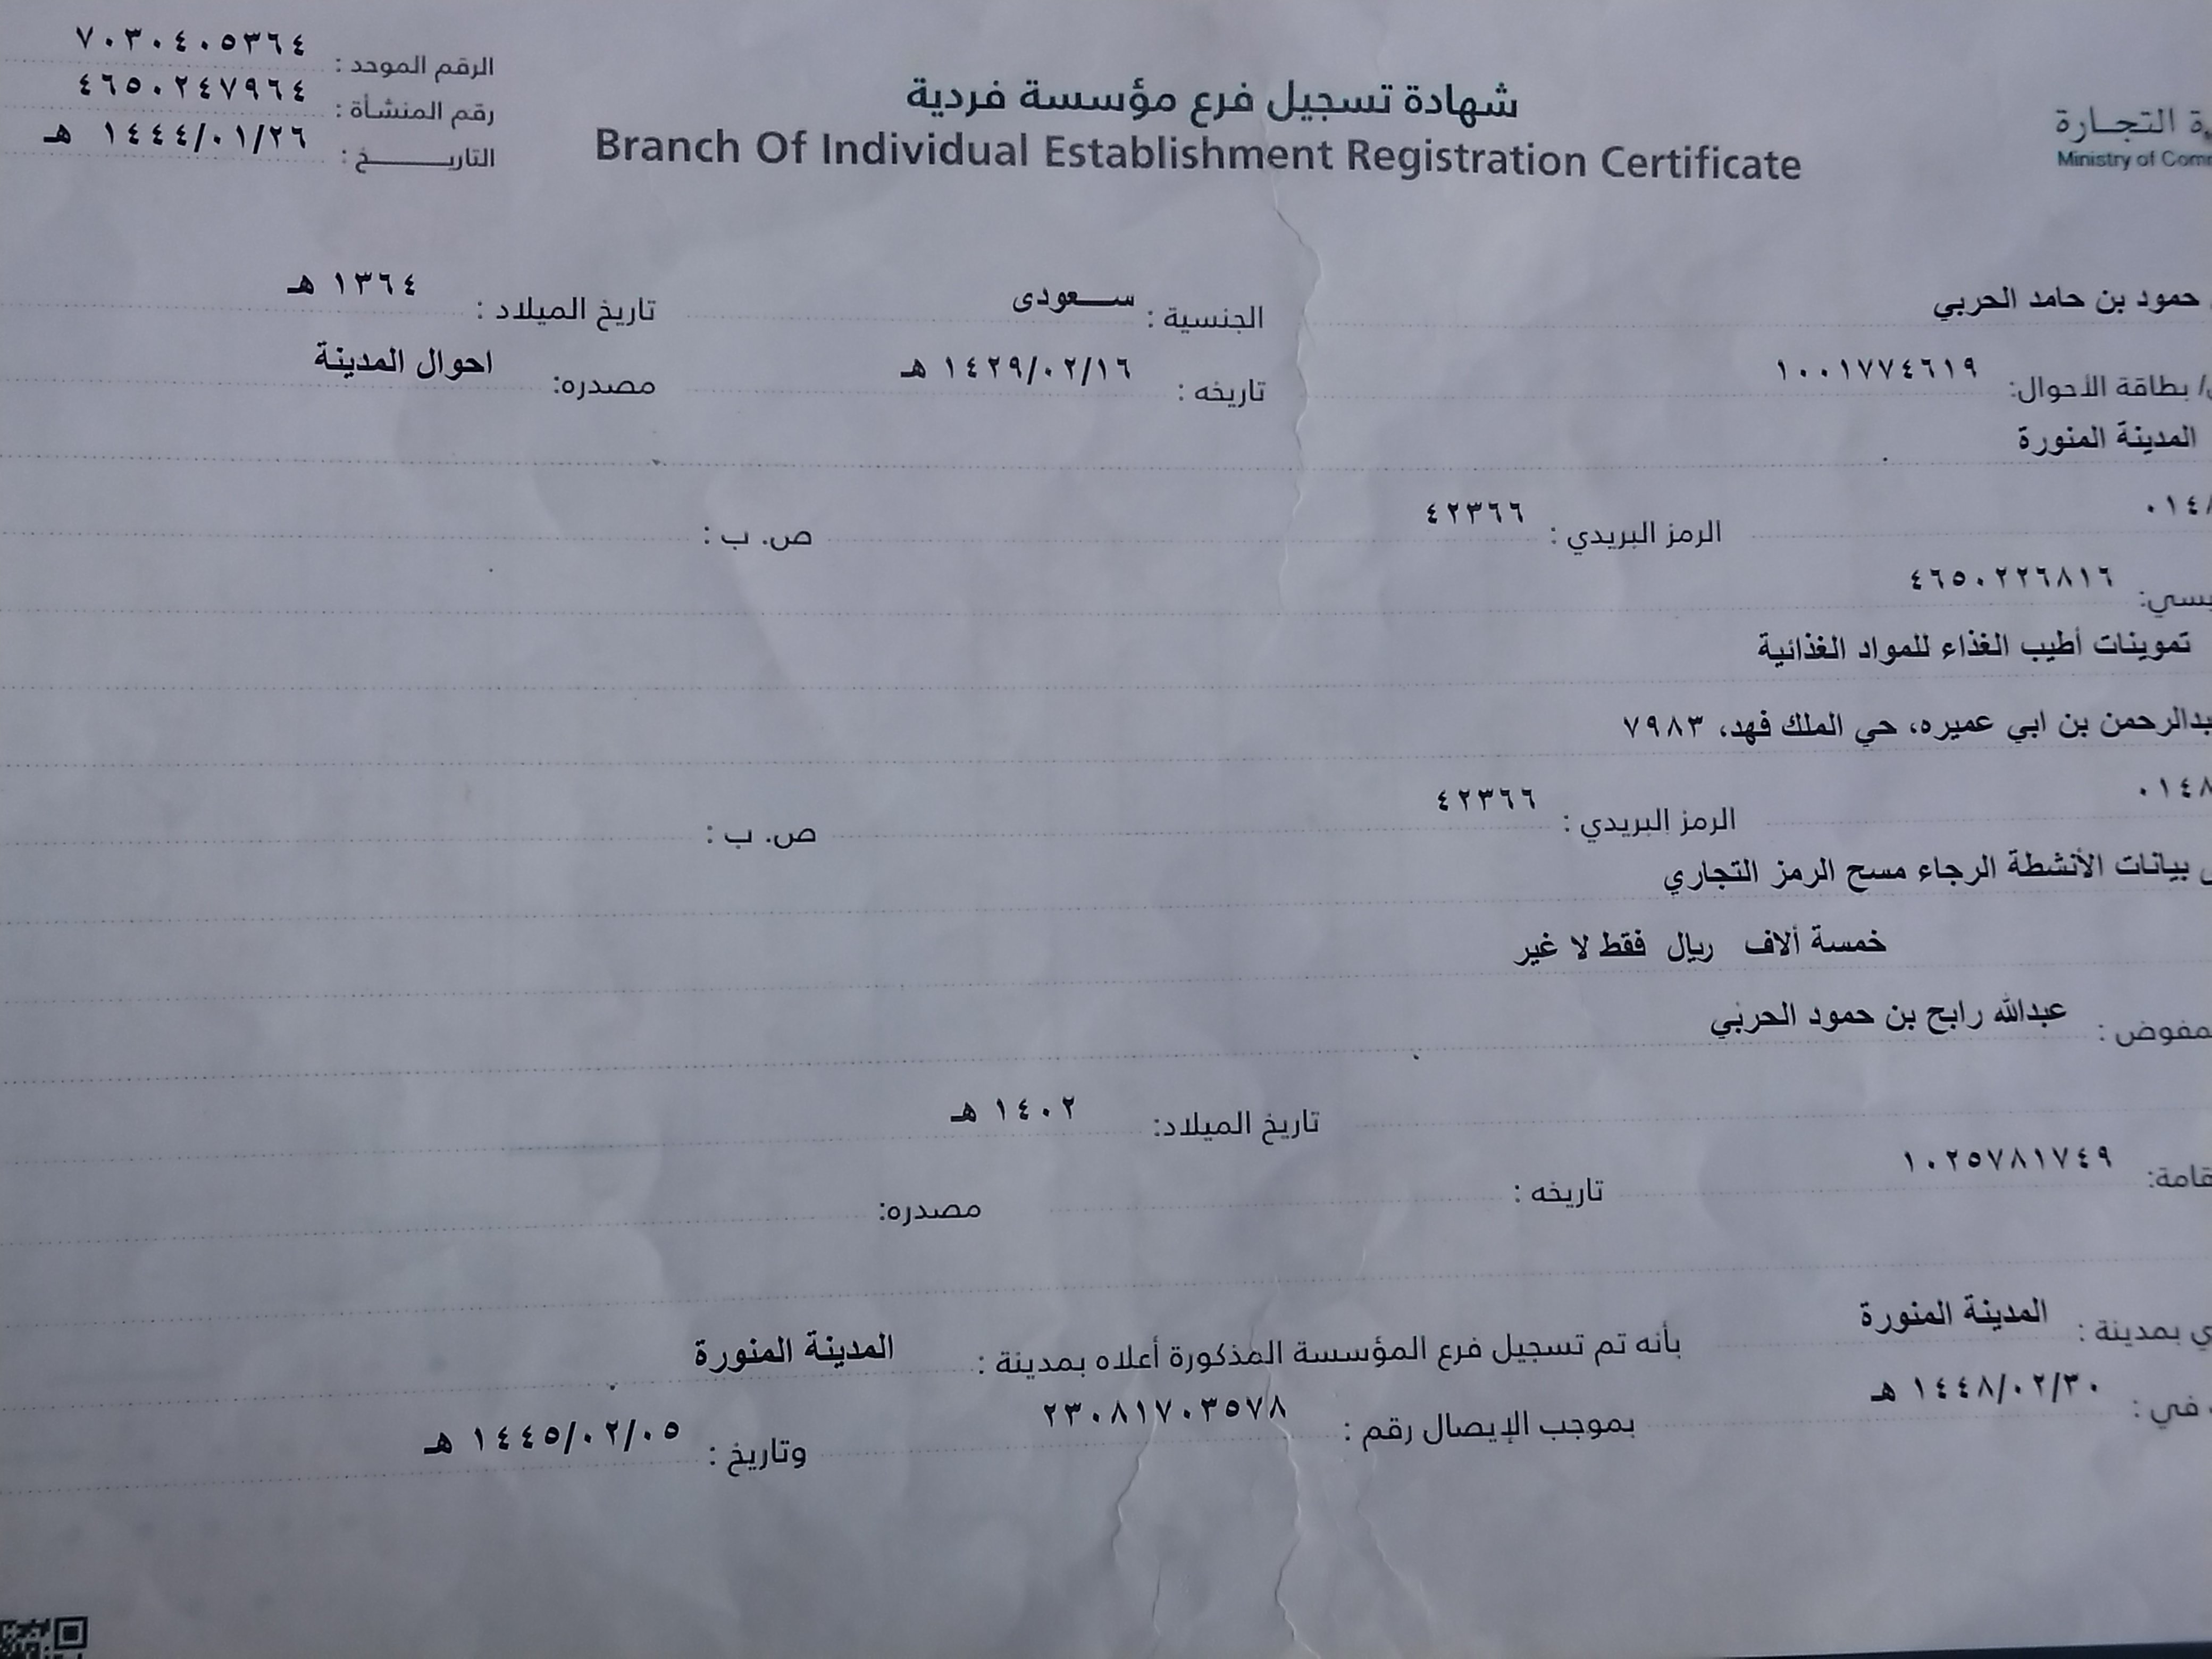 التجـارة
Ministry of
شهادة تسجيل فرع مؤسسة فردية
Branch Of Individual Establishment Registration Certificate
الرقم الموحد : ٧٠٣٠٤٠٥٣٦٤
رقم المنشأة : ٤٦٥٠٢٤٧٩٦٤
التاريـــــخ : ١٤٤٤/٠١/٢٦ هـ
حمود بن حامد الحربي الجنسية : ســعودى تاريخ الميلاد : ١٣٦٤ هـ
/ بطاقة الأحوال: ١٠٠١٧٧٤٦١٩ تاريخه : ١٤٢٩/٠٢/١٦ هـ مصدره: احوال المدينة
المدينة المنورة
الرمز البريدي : ٤٢٣٦٦ ص. ب :
٤٦٥٠٢٢٦٨١٦
تموينات أطيب الغذاء للمواد الغذائية
بن ابي عميره، حي الملك فهد، ٧٩٨٣
الرمز البريدي : ٤٢٣٦٦ ص. ب :
بيانات الأنشطة الرجاء مسح الرمز التجاري
خمسة ألاف ريال فقط لا غير
عبدالله رابح بن حمود الحربي
تاريخ الميلاد: ١٤٠٢ هـ
١٠٢٥٧٨١٧٤٩ تاريخه : مصدره:
بمدينة : المدينة المنورة بأنه تم تسجيل فرع المؤسسة المذكورة أعلاه بمدينة : المدينة المنورة
في : ١٤٤٨/٠٢/٣٠ هـ بموجب الإيصال رقم : ٢٣٠٨١٧٠٣٥٧٨ وتاريخ : ١٤٤٥/٠٢/٠٥ هـ